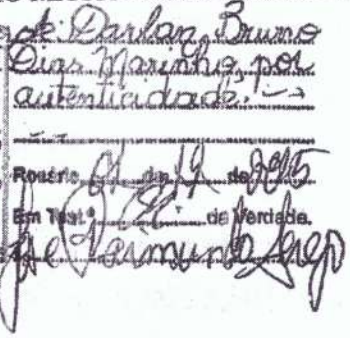 de Darlan Bruno
Dias Marinho, por
autenticidade.
Rosário 01 de 19 de 2015
Em Testº da Verdade.
José Raimundo